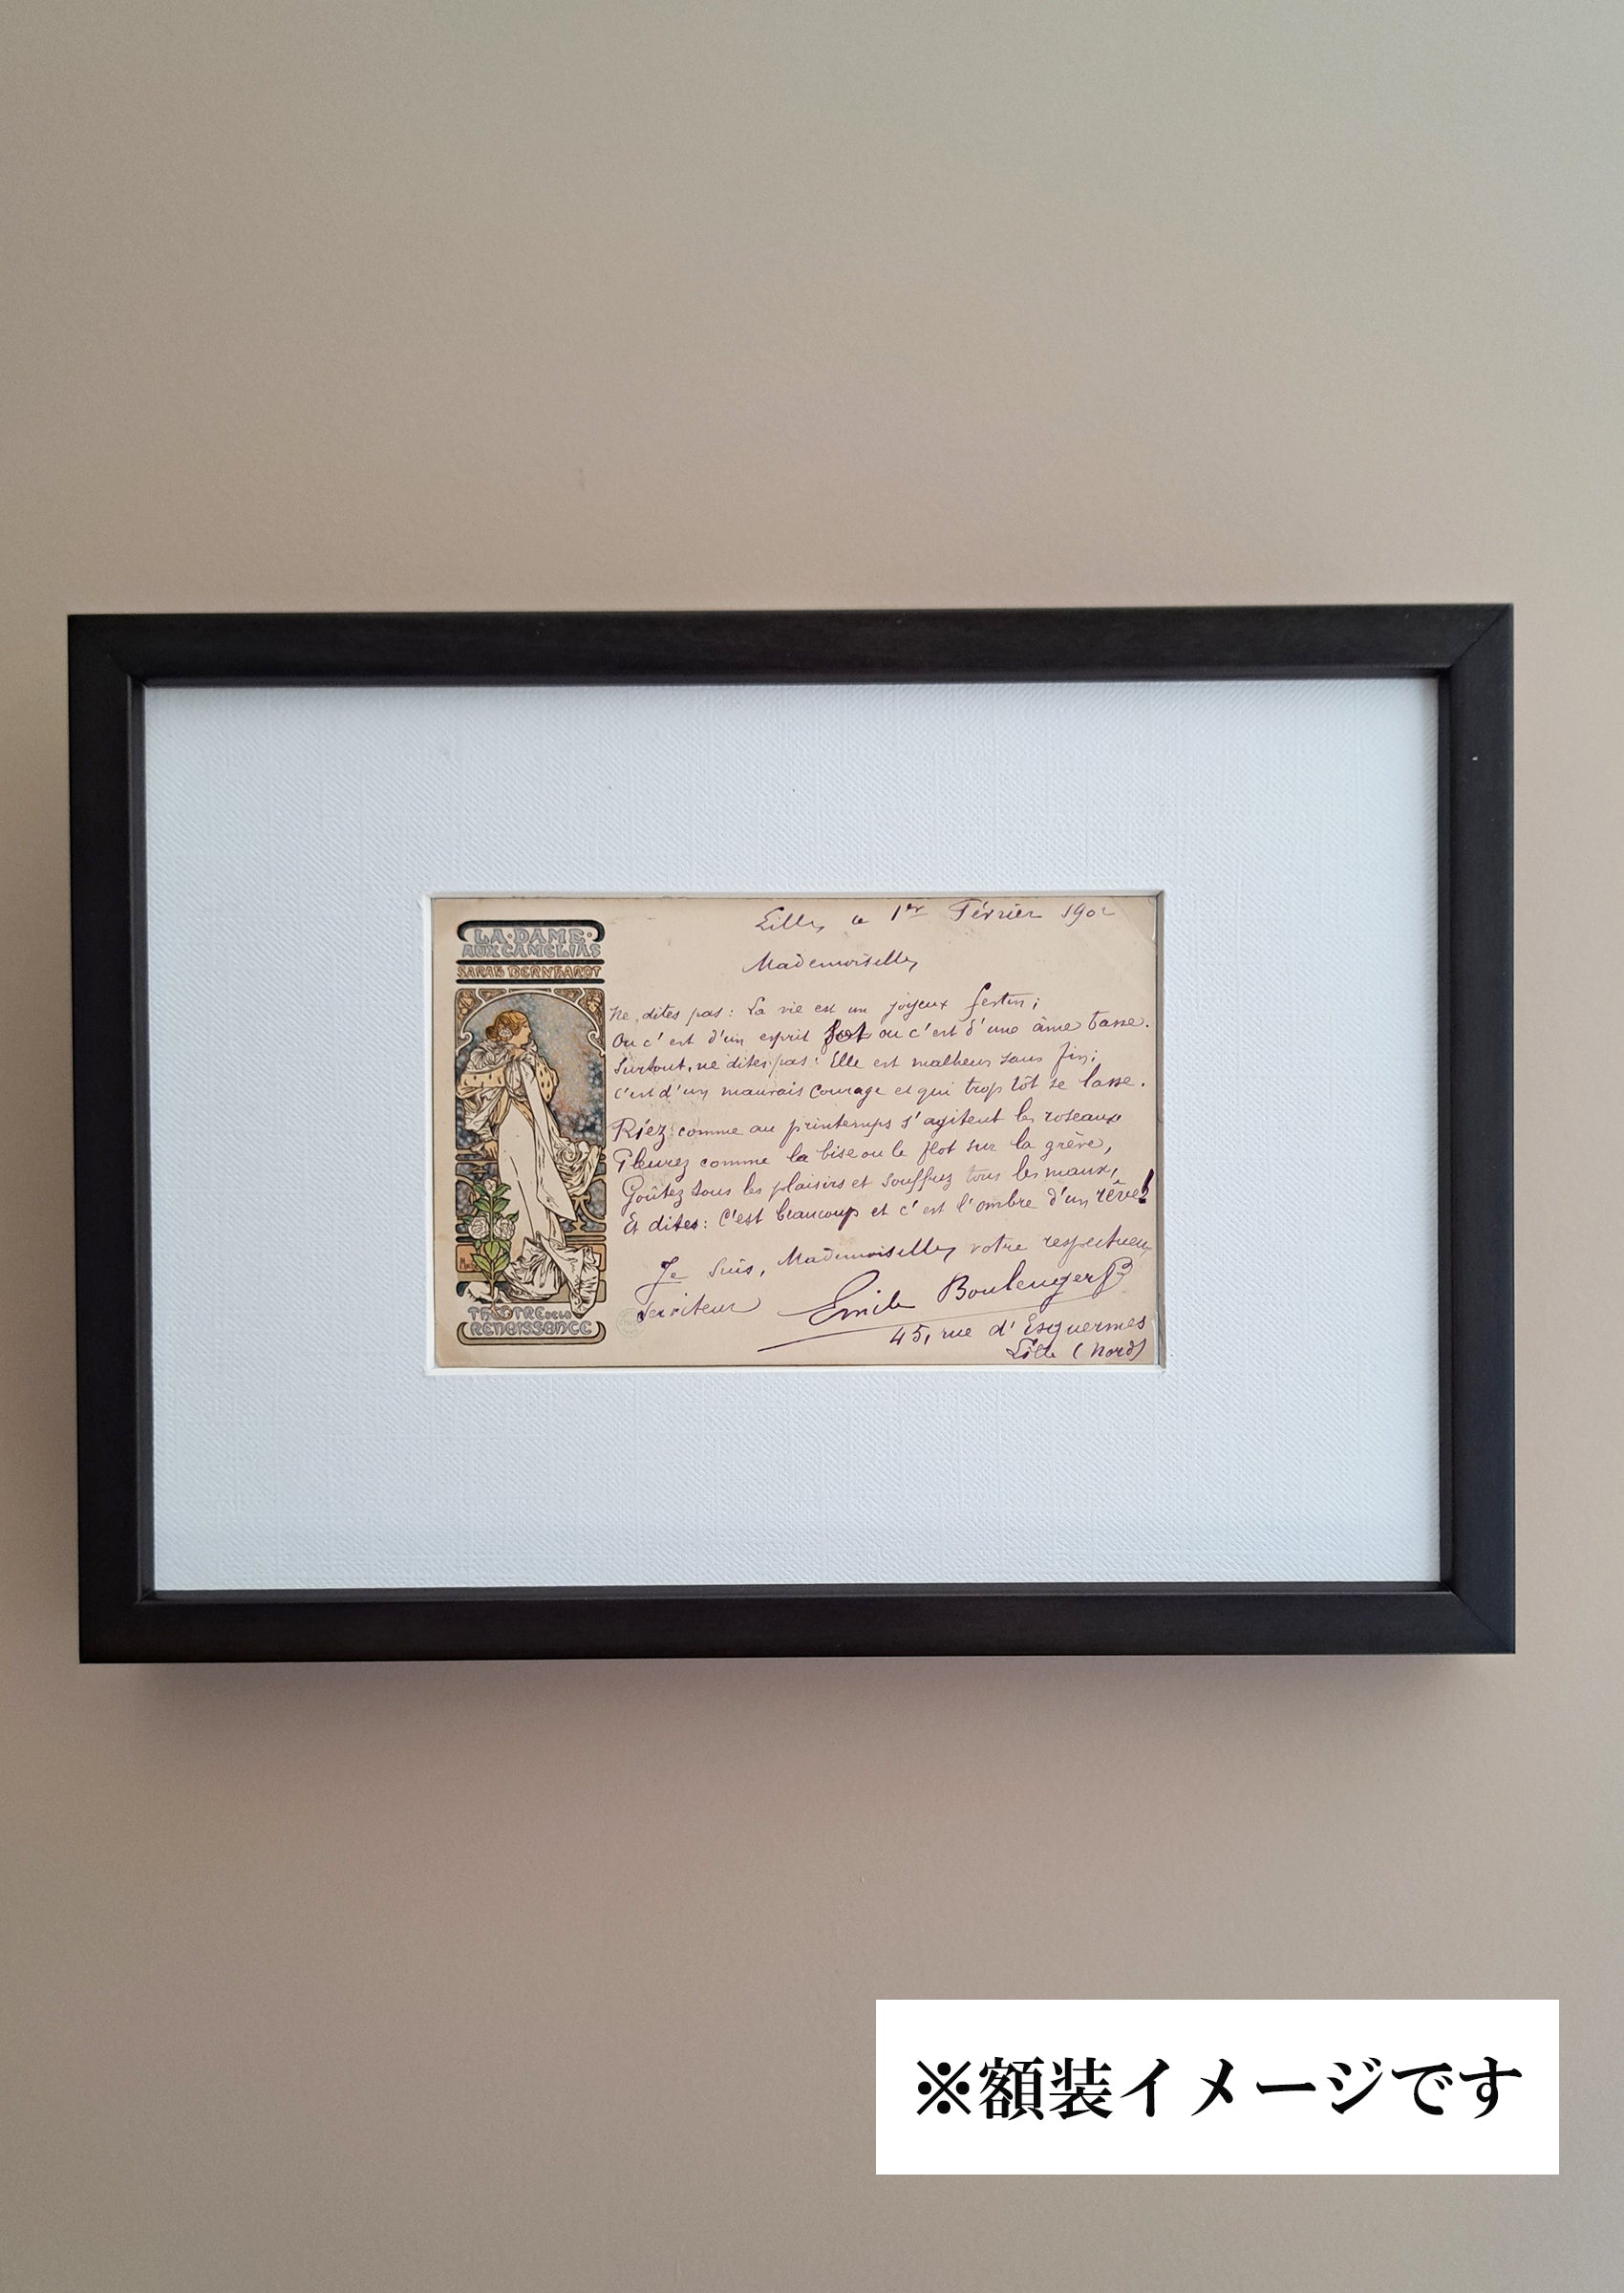 LA·DAME·
AUX CAMELIAS
SARAH BERNHARDT
THÉATRE DE LA
RENAISSANCE
Lille, le 1er Février 190
Mademoiselle,
Ne dites pas: La vie est un joyeux festin;
Ou c'est d'un esprit sot ou c'est d'une âme basse.
Surtout, ne dites pas: Elle est malheur sans fin;
C'est d'un mauvais courage et qui trop tôt se lasse.
Riez comme au printemps s'agitent les roseaux
Pleurez comme la bise ou le flot sur la grève,
Goûtez tous les plaisirs et souffrez tous les maux,
Et dites: C'est beaucoup et c'est l'ombre d'un rêve!
Je suis, Mademoiselle, votre respectueux
serviteur Emile Boulenger
45, rue d'Esquermes
Lille (Nord)
※額装イメージです